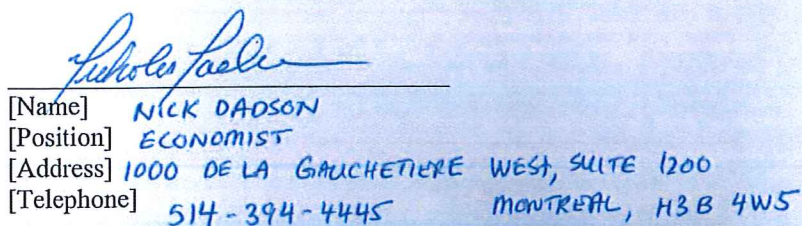 [Name] NICK DADSON
[Position] ECONOMIST
[Address] 1000 DE LA GAUCHETIERE WEST, SUITE 1200
[Telephone] 514-394-4445 MONTREAL, H3B 4W5